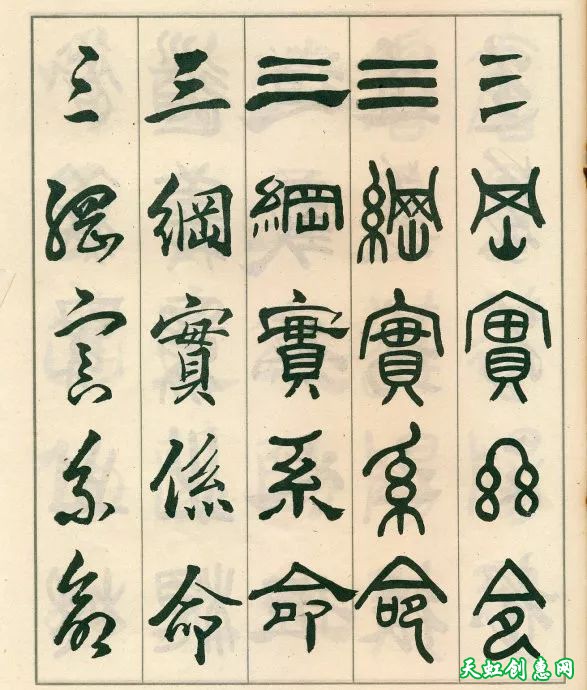 三綱實系命
三綱實系命
三綱實系命
三綱實係命
三綱實系命
天虹创意网